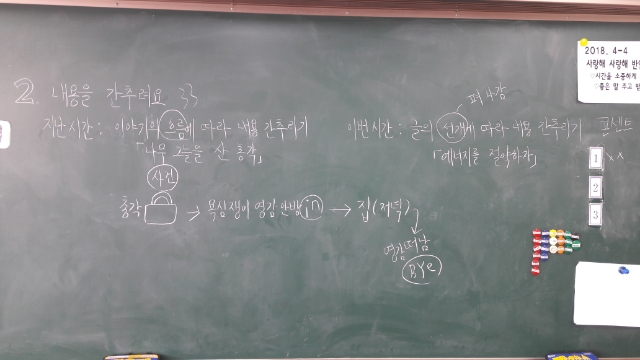 2. 내용을 간추려요 33
지난시간: 이야기의 흐름에 따라 내용 간추리기
「나무 그늘을 산 총각」
사건
총각
→ 욕심쟁이 영감 안방 in → 집(저녁)
영감 떠남
BYe
펴나감
이번시간: 글의 전개에 따라 내용 간추리기
「에너지를 절약하자」
2018. 4-4
사랑해 사랑해 반
○시간을 소중하게
○좋은 말 주고 받
콘센트
1 x x
2
3